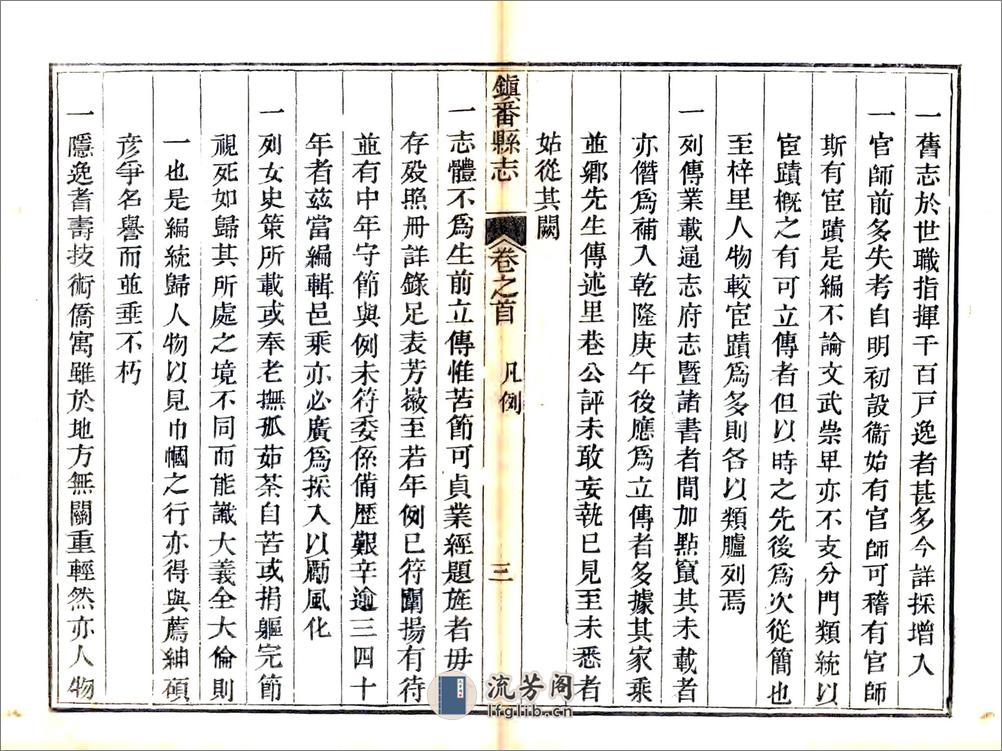 一舊志於世職指揮千百戶逸者甚多今詳採增入
一官師前多失考自明初設衞始有官師可稽有官師
斯有宦蹟是編不論文武崇卑亦不支分門類統以
宦蹟概之有可立傳者但以時之先後爲次從簡也
至梓里人物較宦蹟爲多則各以類臚列焉
一列傳業載通志府志暨諸書者間加點竄其未載者
亦僭爲補入乾隆庚午後應爲立傳者多據其家乘
並鄉先生傳述里巷公評未敢妄執己見至未悉者
姑從其闕
鎮番縣志
卷之首
凡例
三
一志體不爲生前立傳惟苦節可貞業經題旌者毋論
存歿照冊詳錄足表芳徽至若年例已符闡揚有待
並有中年守節與例未符委係備歷艱辛逾三四十
年者茲當編輯邑乘亦必廣爲採入以勵風化
一列女史策所載或奉老撫孤茹荼自苦或捐軀完節
視死如歸其所處之境不同而能識大義全大倫則
一也是編統歸人物以見巾幗之行亦得與薦紳碩
彥爭名譽而並垂不朽
一隱逸耆壽技術僑寓雖於地方無關重輕然亦人物
流芳阁
lfglib.cn